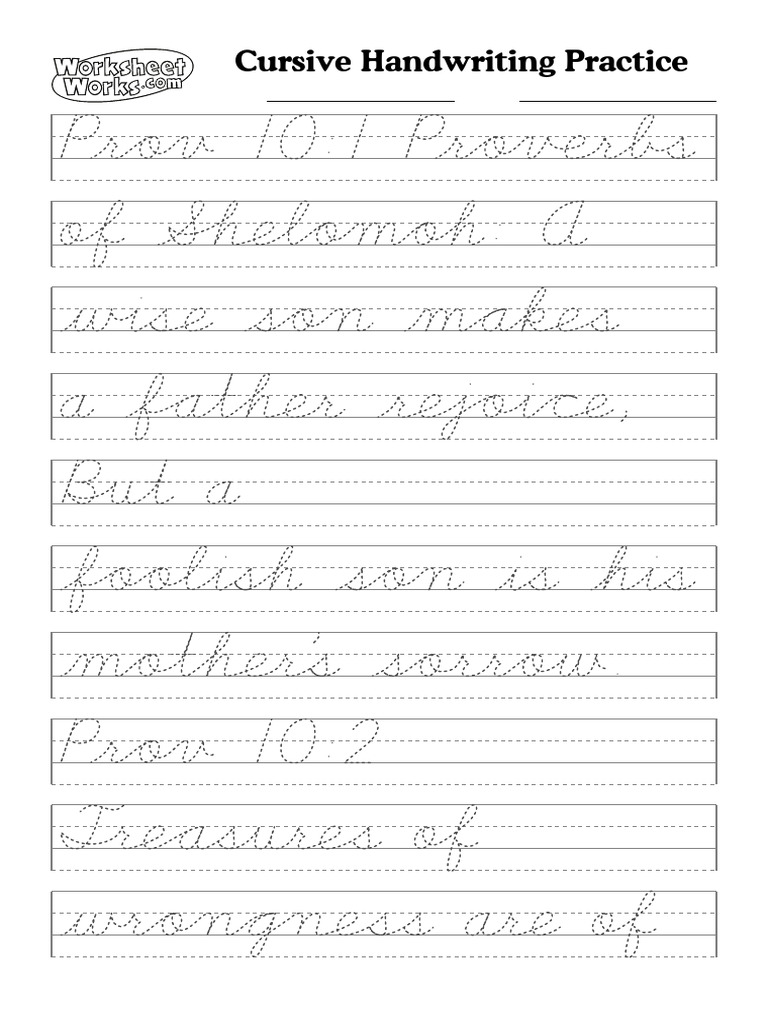 Worksheet Works.com
Cursive Handwriting Practice
Prov 10:1 Proverbs
of Shelomoh: A
wise son makes
a father rejoice,
But a
foolish son is his
mother's sorrow.
Prov 10:2
Treasures of
wrongness are of